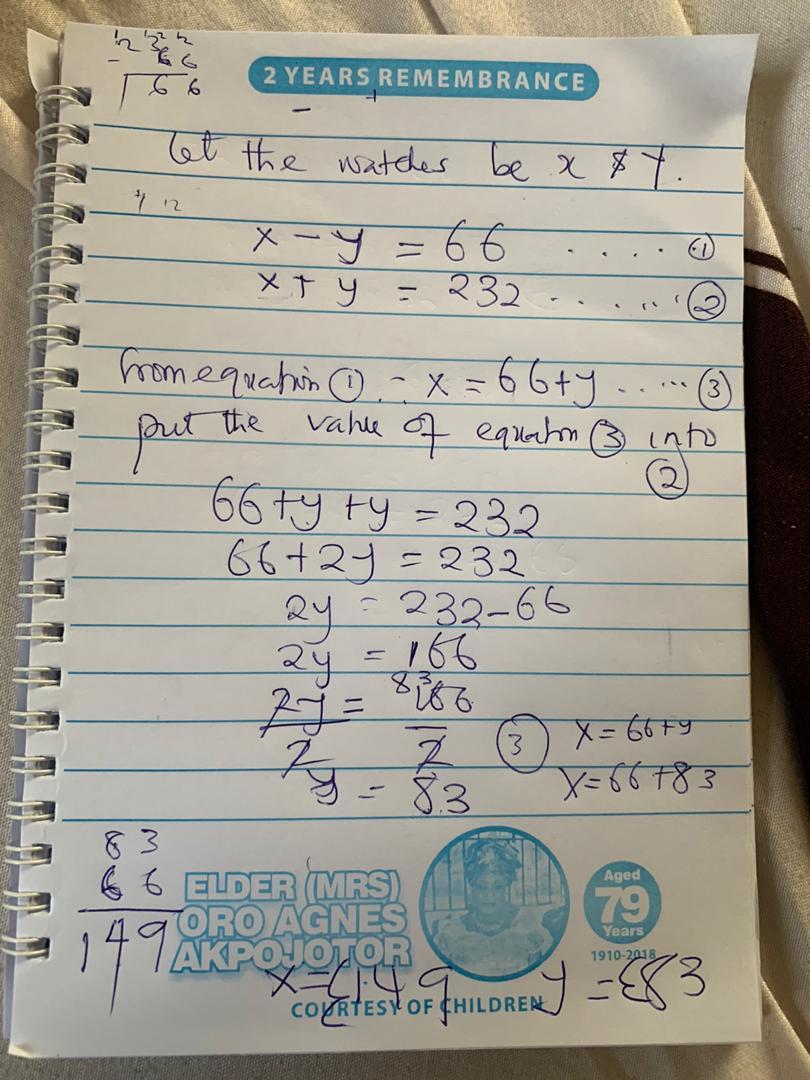 12 3 2
- 6 6
1 6 6
2 YEARS REMEMBRANCE
- +
let the watches be x & y.
12
x - y = 66 ..... ①
x + y = 232 ...... ②
from equation ① - x = 66+y ..... ③
put the value of equation ③ into
②
66+y+y = 232
66+2y = 232
2y = 232-66
2y = 166
83
2y = 166
2 2
③ x = 66+y
y = 83
x = 66+83
83
66
149
ELDER (MRS)
ORO AGNES
AKPOJOTOR
Aged
79
Years
1910-2018
x=£149 y=£83
COURTESY OF CHILDREN